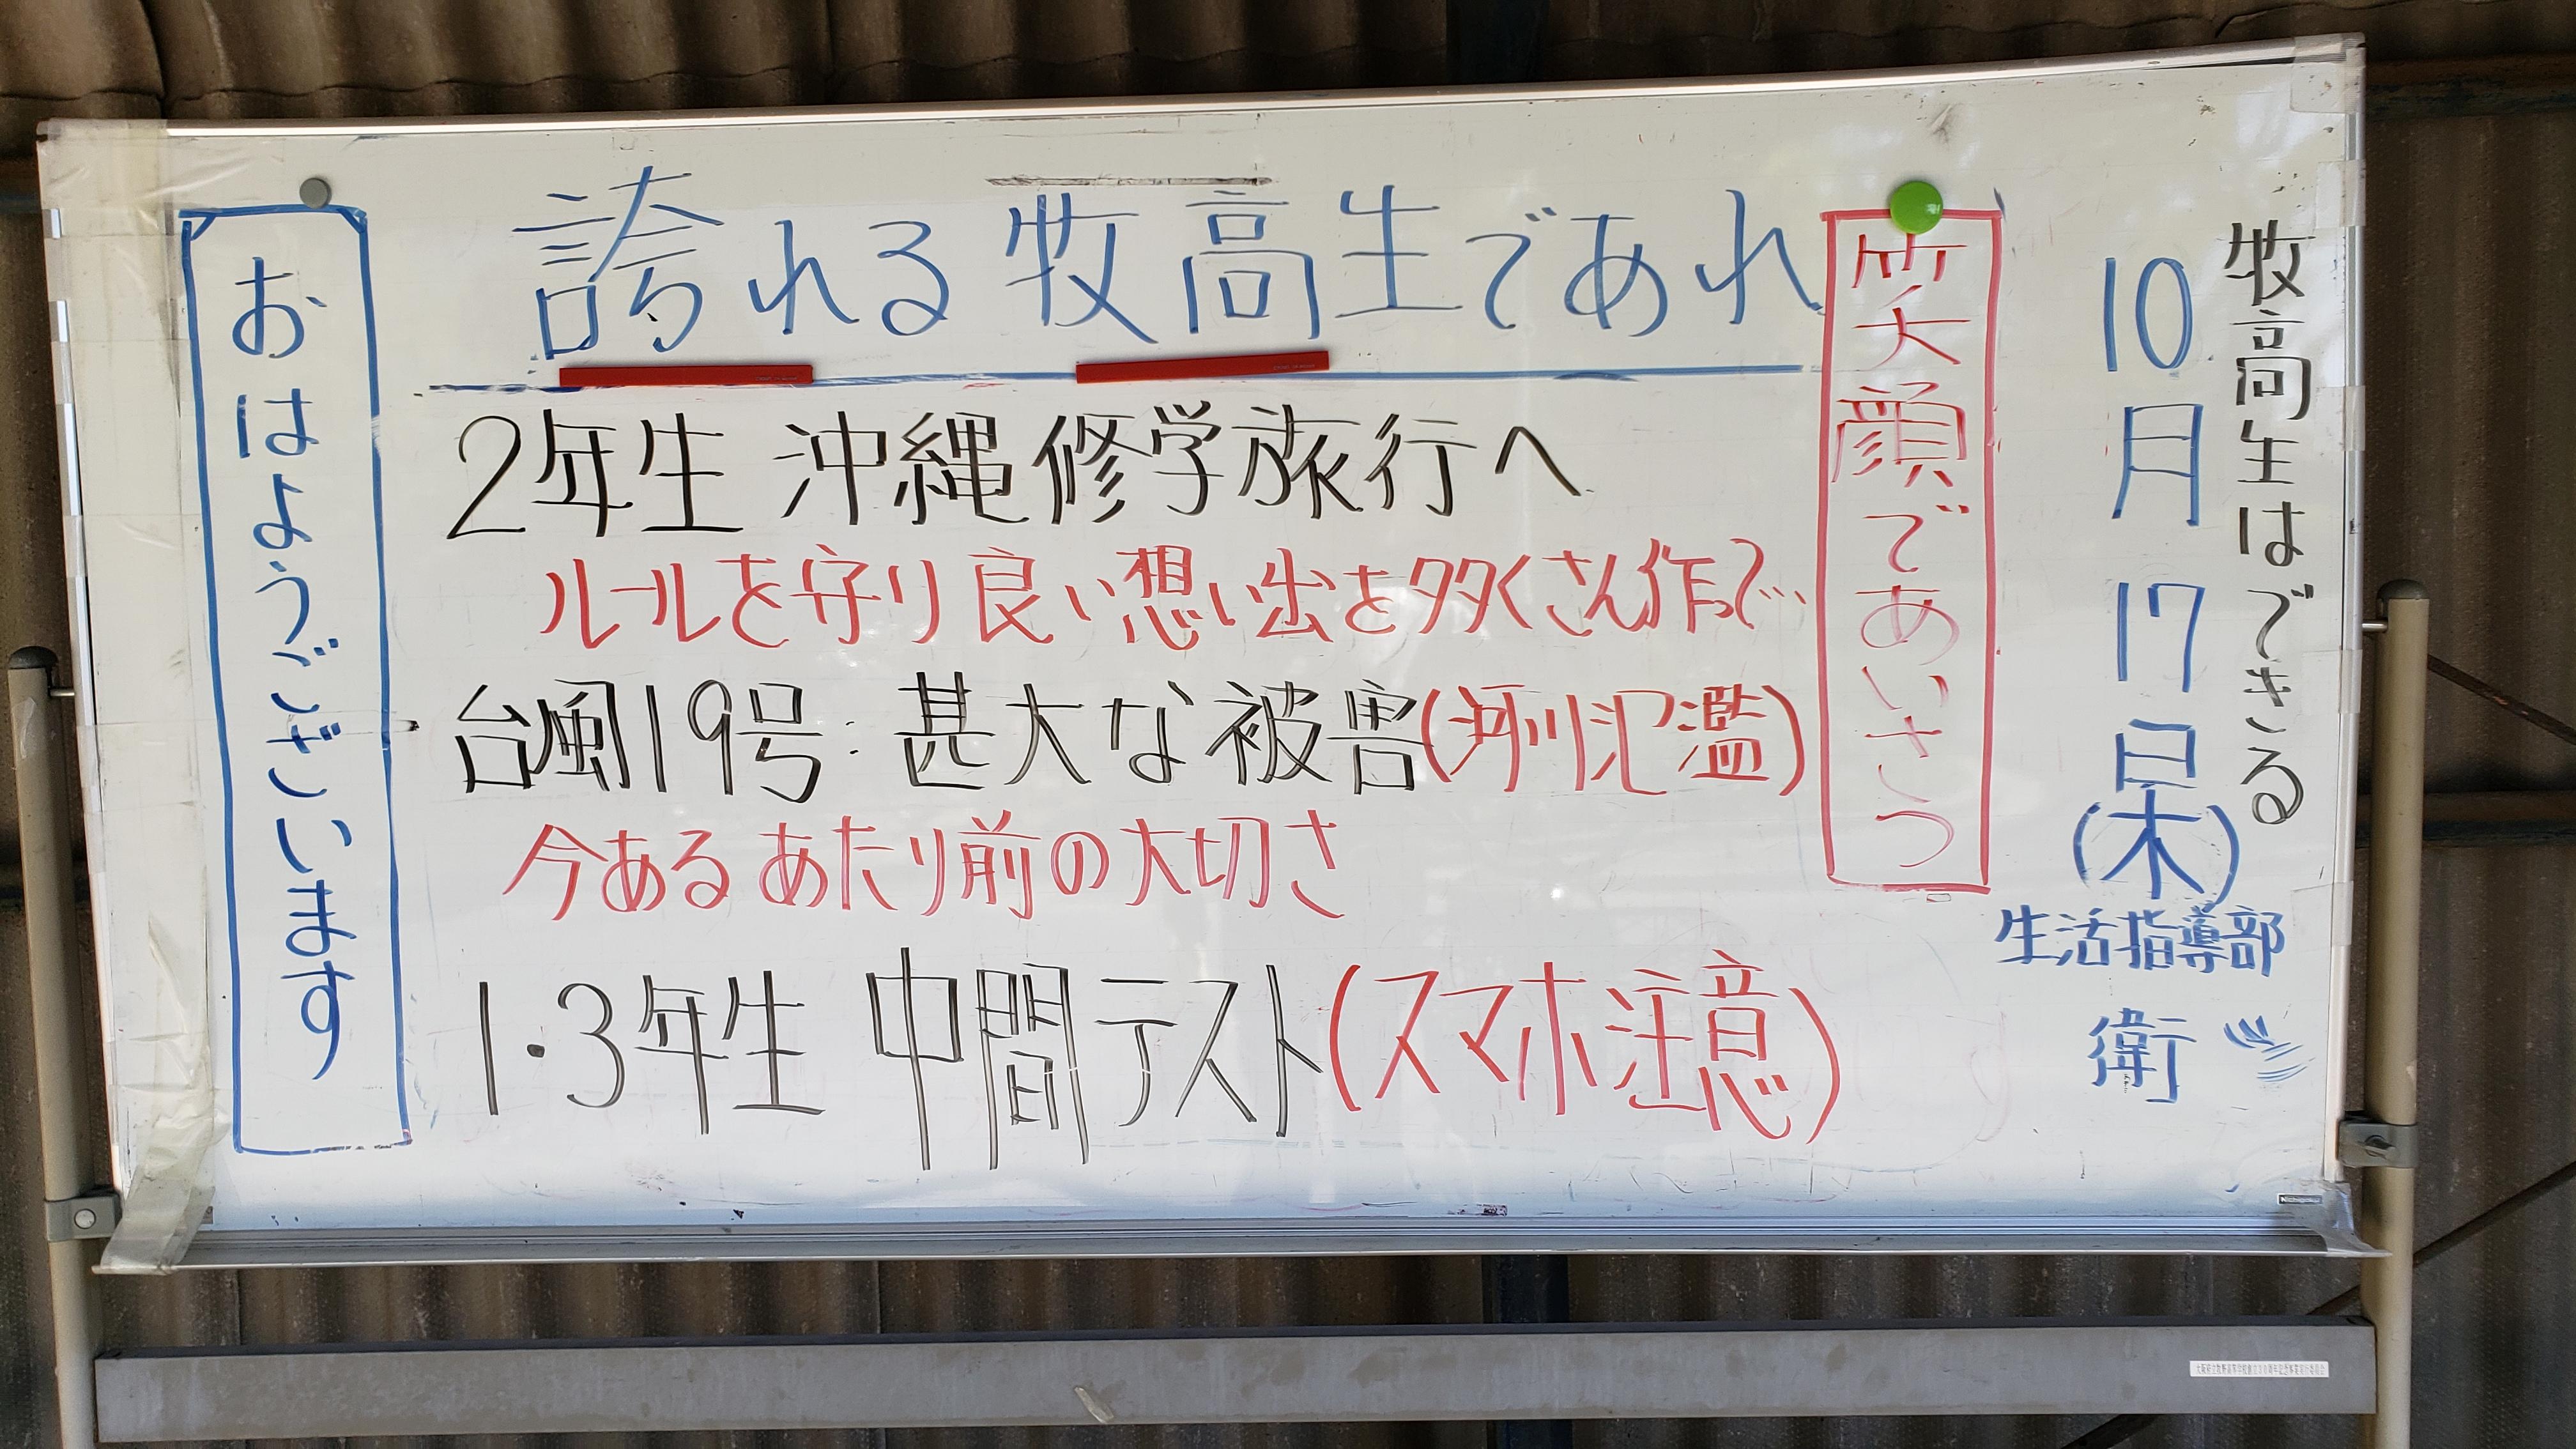 牧高生はできる
10月17日(木)
生活指導部
衛
笑顔であいさつ
誇れる牧高生であれ
2年生 沖縄修学旅行へ
ルールを守り良い想い出を多くさん作って…
台風19号:甚大な被害(河川氾濫)
今あるあたり前の大切さ
1・3年生 中間テスト(スマホ注意)
おはようございます